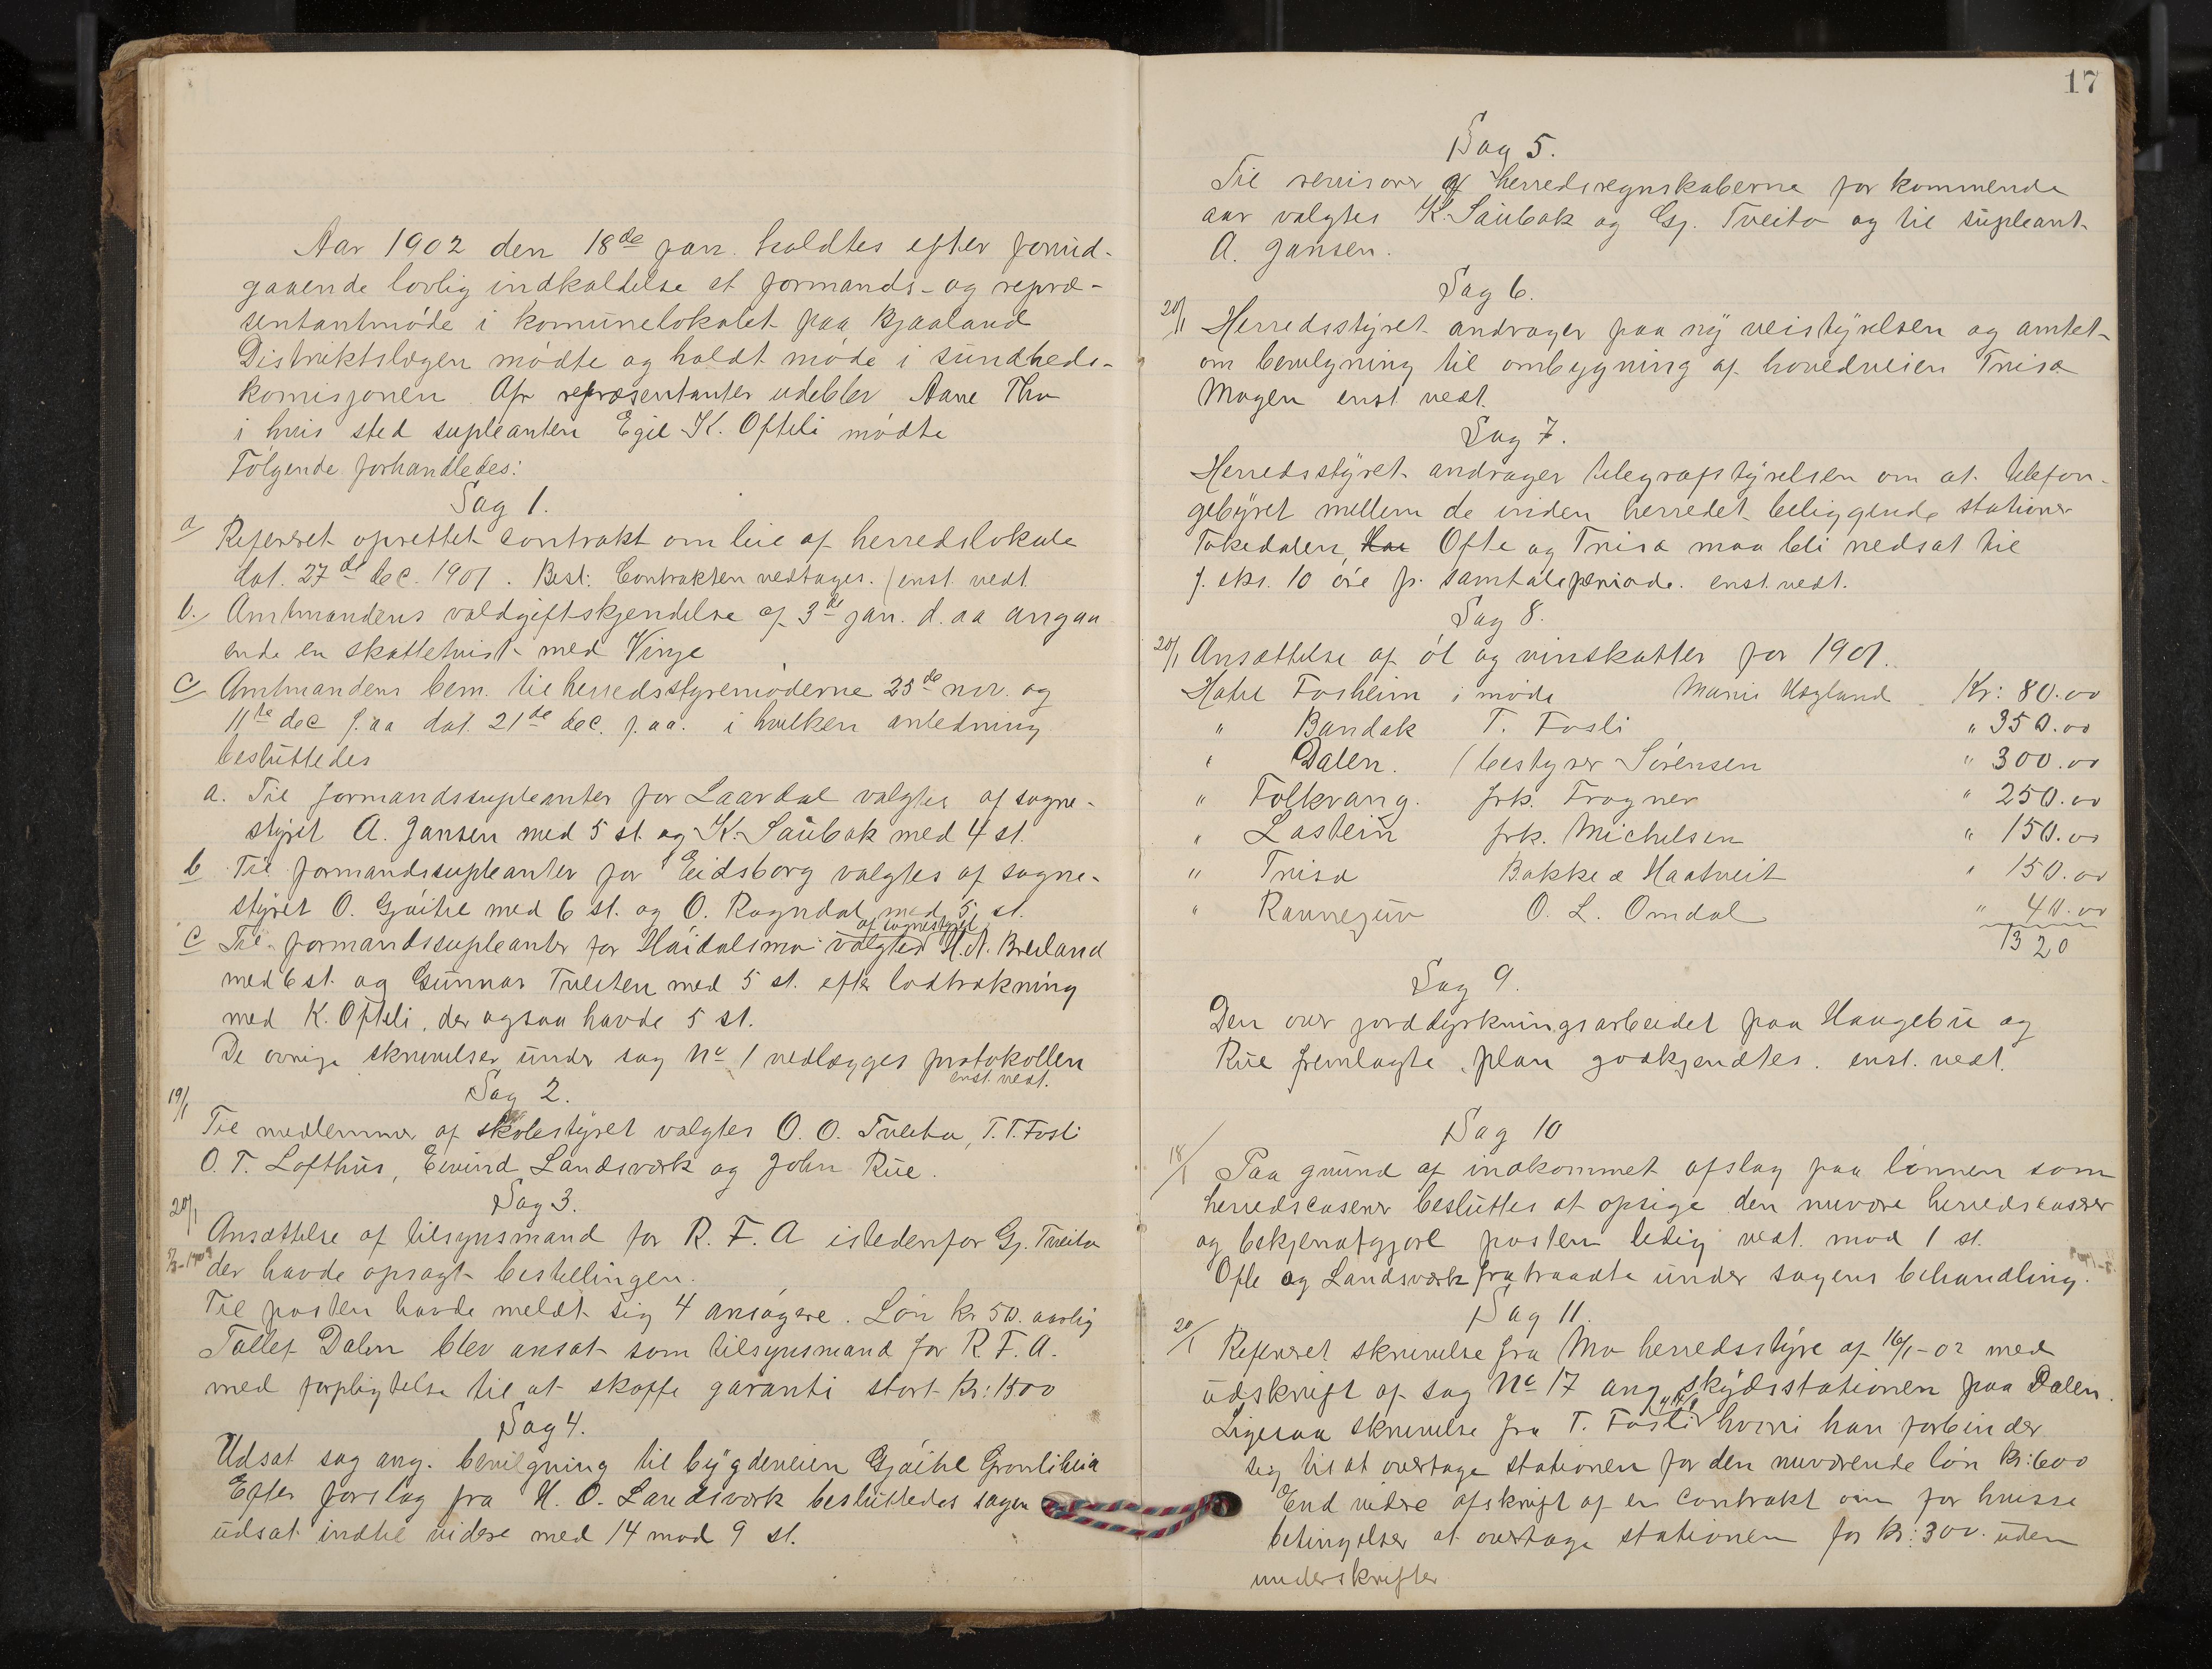 Aar 1902 den 18de jan. holdtes efter forud-
gaaende lovlig indkaldelse et formands- og repræ-
sentantmøde i komunelokalet paa Bjaaland
Distriktslægen mødte og holdt møde i sundheds-
komisjonen. Af repræsentanter udeblev Aane Tho
i hvis sted supleanten Egil K. Ofteli mødte
Følgende forhandledes:
Sag 1.
a Refereret oprettet contrakt om leie af herredslokale
dat. 27de dec. 1901. Besl: Contrakten vedtages. (enst. vedt.
b. Amtmandens voldgiftskjendelse af 3de jan. d. aa angaa
ende en skattetvist med Vinje
c Amtmandens bem. til herredsstyremøderne 25de nov. og
11te dec f. aa dat. 21de dec. f. aa. i hvilken anledning
besluttedes
a. Til formandssupleanter for Laardal valgtes af sogne-
styret A. Jansen med 5 st. og K. Saubak med 4 st.
b Til formandssupleanter for Eidsborg valgtes af sogne-
styret O. Gjøitil med 6 st. og O. Rogndal med 5 st.
af sognestyret
c Til formandssupleanter for Høidalsmo valgtes H. A. Breiland
med 6 st. og Gunnar Tveiten med 5 st. efter lodtrækning
med K. Ofteli, der ogsaa havde 5 st.
De øvrige skrivelser under sag No 1 vedlægges protokollen
enst. vedt.
19/1 Sag 2.
Til medlemmer af skolestyret valgtes O. O. Tveito, T. T. Fosli
O. T. Lofthus, Eivind Landsværk og John Rue.
20/1 Sag 3.
Ansættelse af tilsynsmand for R. F. A istedenfor Gj. Tveito
der havde opsagt bestillingen.
Til posten havde meldt sig 4 ansøgere. Løn kr 50. aarlig
Tallef Dalen blev ansat som tilsynsmand for R. F. A.
med forpligtelse til at skaffe garanti stort kr: 1500
Sag 4.
Udsat sag ang. bevilgning til bygdeveien Gjøitil Grønlibeia
Efter forslag fra H. O. Landsværk besluttedes sagen
udsat indtil videre med 14 mod 9 st.
17
Sag 5.
Til revisorer af herredsregnskaberne for kommende
aar valgtes K. Saubak og Gj. Tveito og til supleant
A. Jansen.
Sag 6.
20/1 Herredsstyret andrager paa ny veistyrelsen og amtet
om bevilgning til ombygning af hovedveien Triså
Mogen enst vedt.
Sag 7.
Herredsstyret andrager telegrafstyrelsen om at telefon-
gebyret mellem de inden herredet beliggende stationer
Tokedalen, Ofte og Triså maa bli nedsat til
f. eks. 10 øre pr. samtaleperiode. enst. vedt.
Sag 8.
20/1 Ansættelse af øl og vinskatter for 1901.
Hotel Fosheim i møde Marie Høgland Kr: 80.00
" Bandak T. Fosli " 350.00
" Dalen. (bestyrer Sørensen " 300.00
" Folkvang. frk. Frogner " 250.00
" Lastein frk. Michelsen " 150.00
" Triså Bakke & Haatveit " 150.00
" Rannejuv O. L. Omdal " 40.00
1320
Sag 9.
Den over jorddyrkningsarbeidet paa Haugebu og
Rue fremlagte plan godkjendtes. enst. vedt.
Sag 10
18/1 Paa grund af indkommet afslag paa lønnen som
herredscaserer besluttes at opsige den nuvære herredscaserer
og bekjendtgjøre posten ledig vedt. mod 1 st.
Ofte og Landsværk fratraadte under sagens behandling.
Sag 11.
20/1 Refereret skrivelse fra Mo herredsstyre af 16/1-02 med
udskrift af sag No 17 ang. skydsstationen paa Dalen.
Ligesaa skrivelse fra T. Fosli hvori han forbinder
sig til at overtage stationen for den nuværende løn kr: 600
End videre afskrift af en contrakt om for hvisse
betingelser at overtage stationen for kr: 300. uden
underskrifter